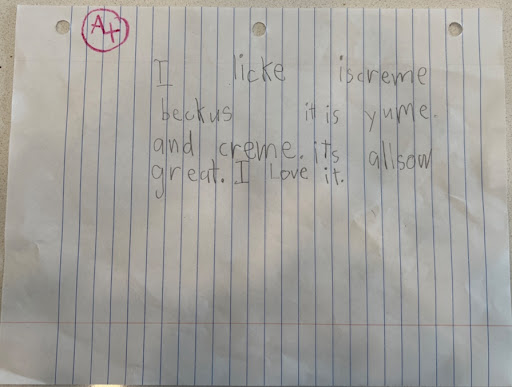 A+
I licke iscreme
beckus it is yume.
and creme. its allsow
great. I Love it.